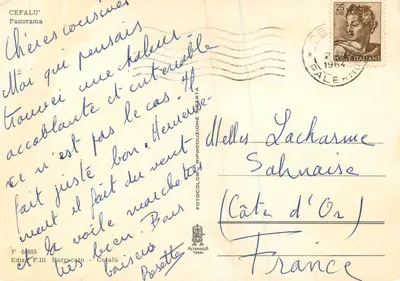 CEFALU'
Panorama
Chères cousines
Moi qui pensais
trouver une chaleur
accablante et intenable
ce n'est pas le cas. Il
fait juste bon. Heureuse-
ment il fait du vent
et la voile marche
très bien. Bons
baisers
Rosette
P 60685
Ediz. F.lli Barracato - Cefalù
FOTOCOLOR RIPRODUZIONE VIETATA
ALTEROCCA
TERNI
25
POSTE ITALIANE
1964
PALERMO
Melles Lacharme
Sahnaise
(Côte d'Or)
France